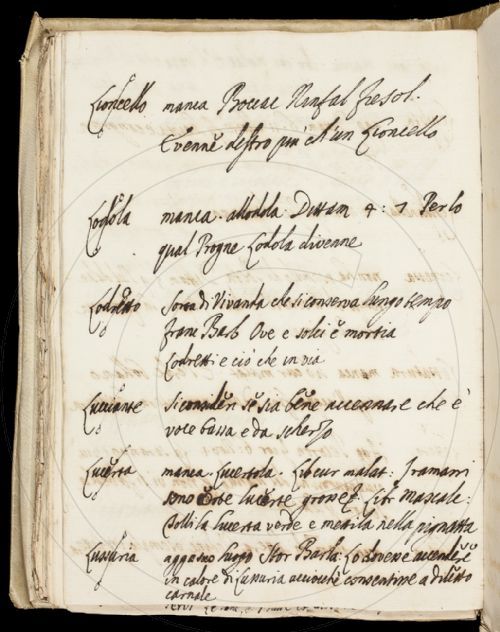 Lioncello manca Boccac Ninfal Fiesol.
E venne destro più ch'un Lioncello
Lodola manca. allodola. Dittam 4: 7 Per lo
qual Progne Lodola divenne
Lodretto Sorta di Vivanda che si conserva lungo tempo
Franc Barb Ove e solci e mortia
Lodretti e ciò che in via
Lucciante Si consideri se sia bene accennare che è
voce bassa e da scherzo
Lucerta manca. Lucertola. Libcur malat: I ramarri
sono Lucerte grosse Lib Mascale:
Tolli la lucerta verde e mettila nella pignatta
Lussuria aggiungi luogo Stor Barla: Lo dovesse accendere
in calore di Lussuria acciochè consentisse a diletto
carnale